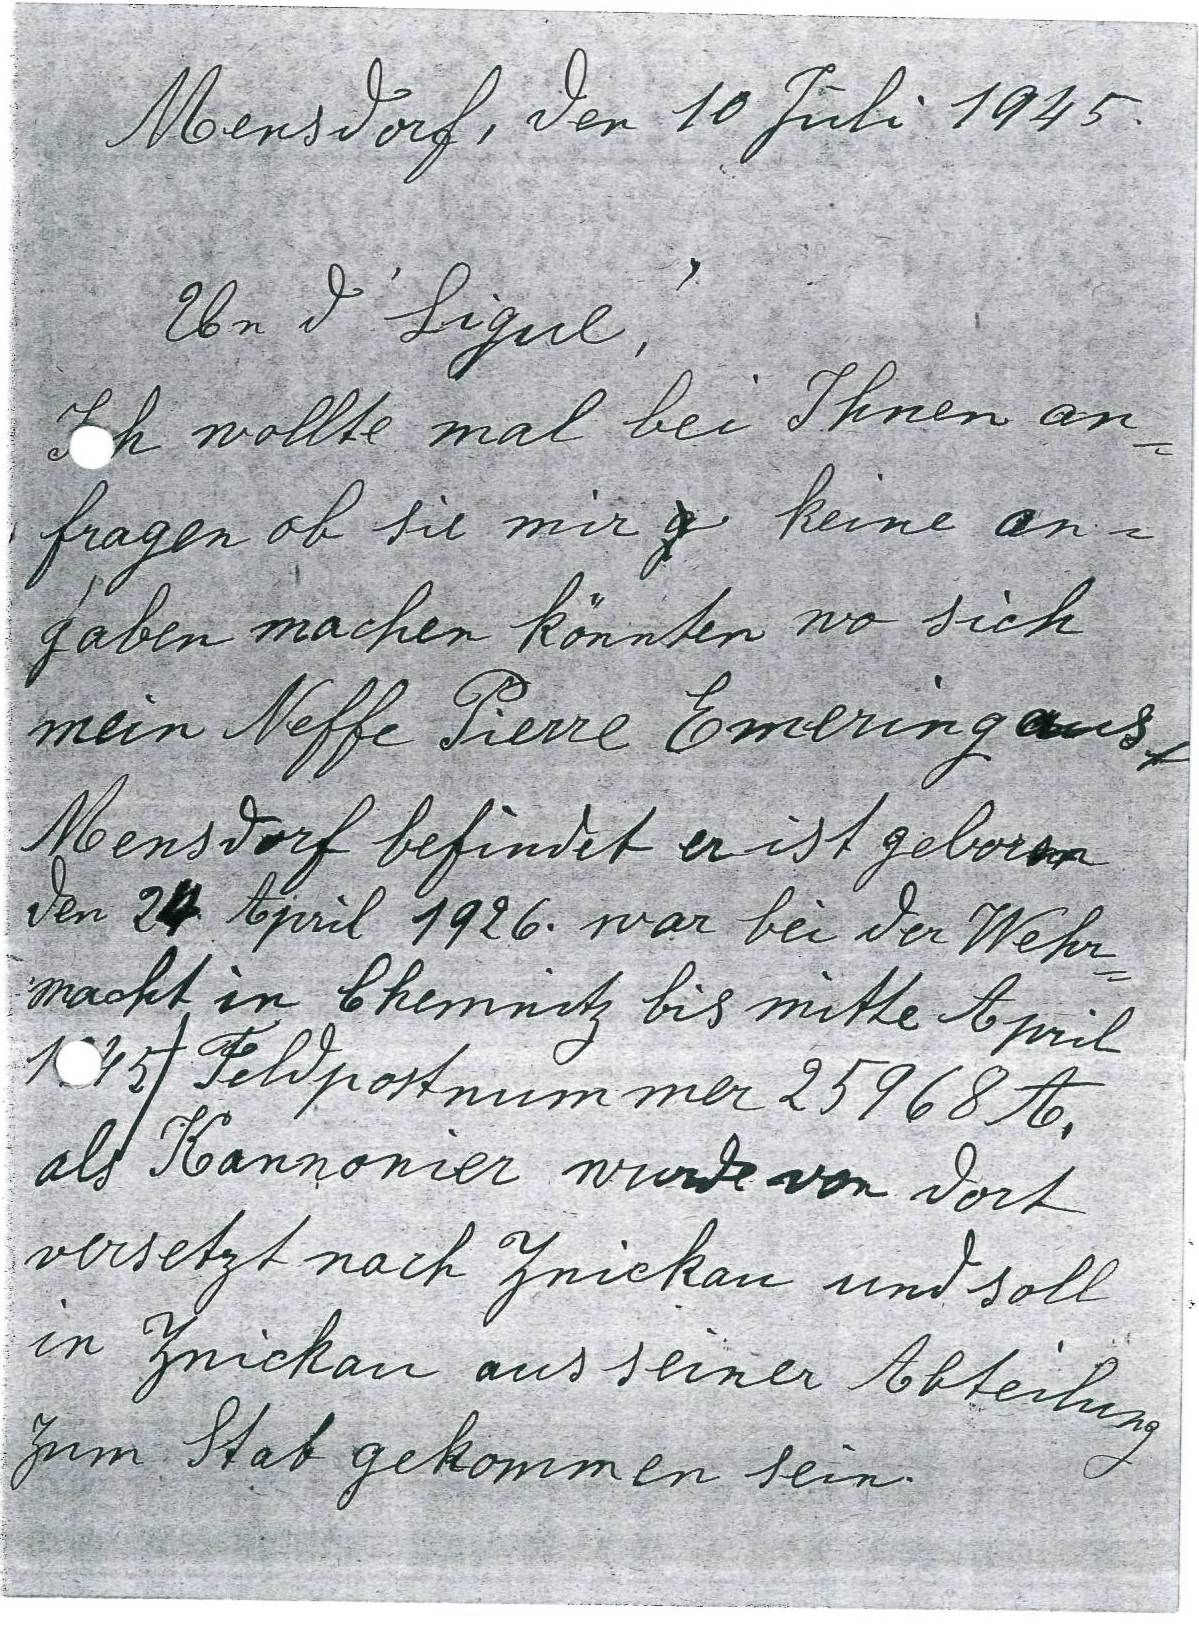 Mensdorf, den 10 Juli 1945.
An d'Ligue,
Ich wollte mal bei Ihnen an=
fragen ob sie mir keine an=
gaben machen könnten wo sich
mein Neffe Pierre Emering aus
Mensdorf befindet er ist geboren
den 24 April 1926. war bei der Wehr=
macht in Chemnitz bis mitte April
1945 Feldpostnummer 25968 A.
als Kannonier wurde von dort
versetzt nach Znickau und soll
in Znickau aus seiner Abteilung
zum Stab gekommen sein.